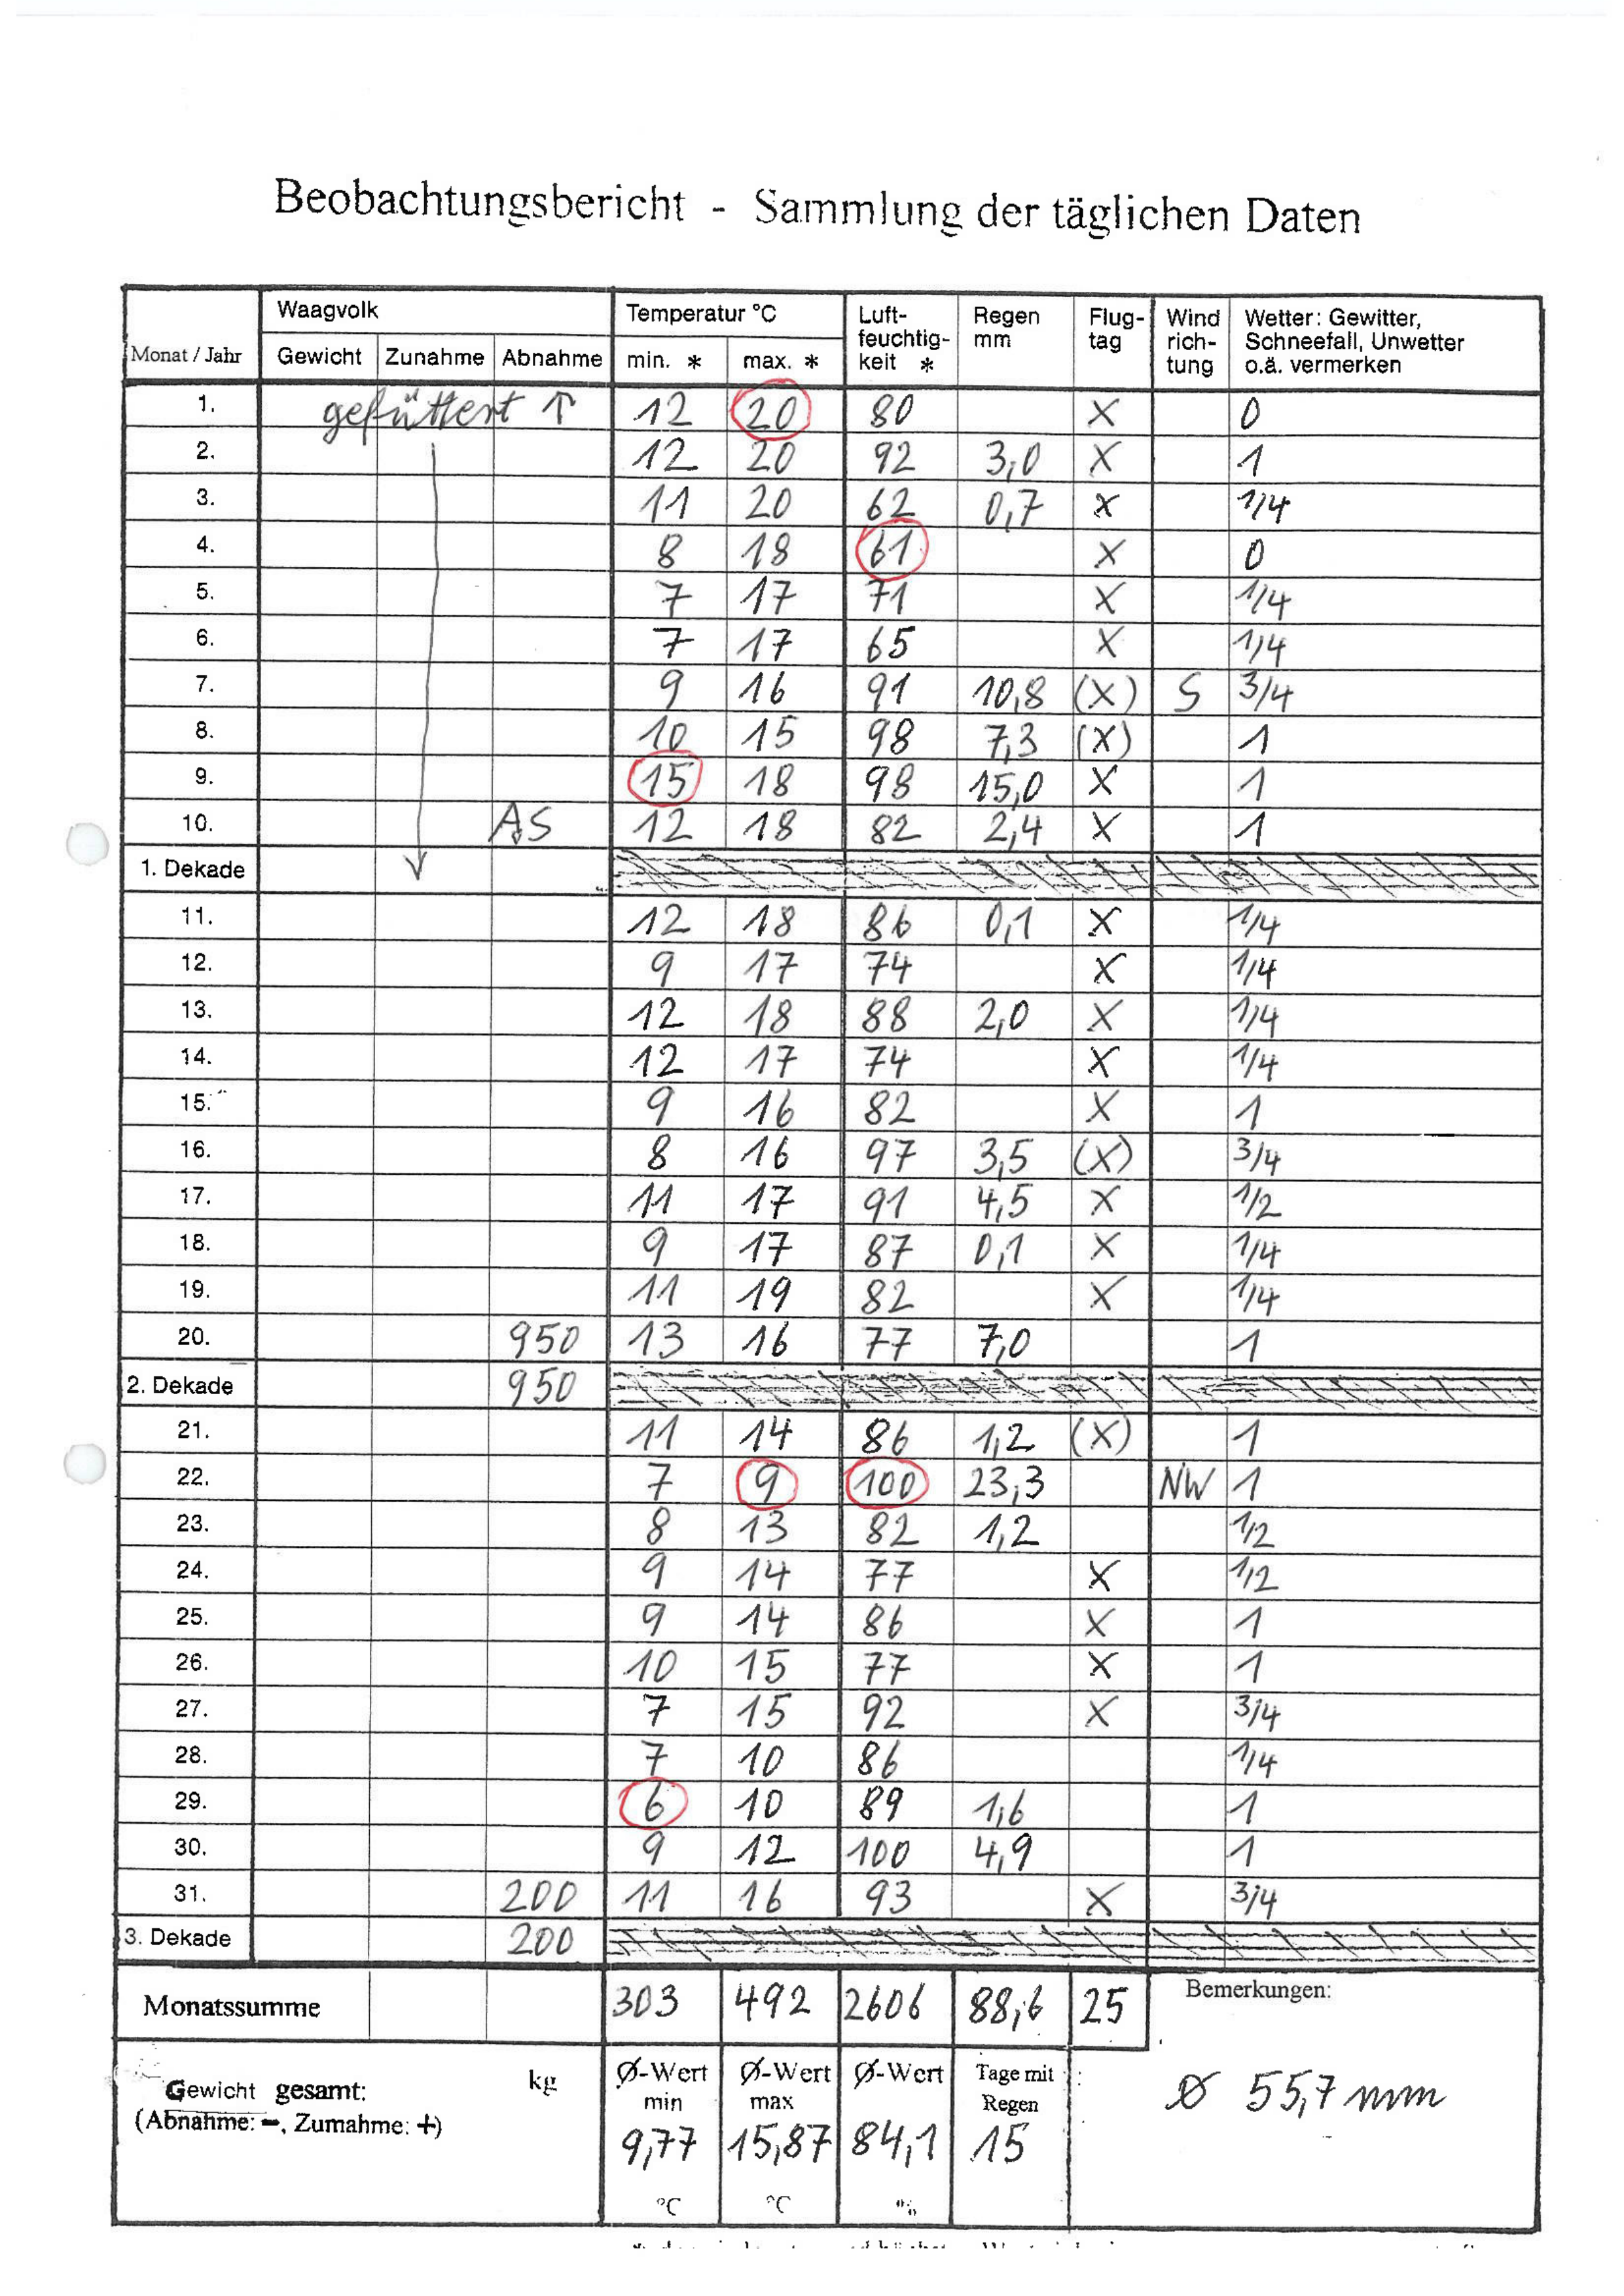 Beobachtungsbericht - Sammlung der täglichen Daten
Monat / Jahr Waagvolk Temperatur °C Luft-feuchtig-keit * Regen mm Flug-tag Wind rich-tung Wetter: Gewitter, Schneefall, Unwetter o.ä. vermerken
Gewicht Zunahme Abnahme min. * max. *
1. gefüttert ↑ 12 20 80 X 0
2. 12 20 92 3,0 X 1
3. 11 20 62 0,7 X 1/4
4. 8 18 61 X 0
5. 7 17 71 X 1/4
6. 7 17 65 X 1/4
7. 9 16 91 10,8 (X) S 3/4
8. 10 15 98 7,3 (X) 1
9. 15 18 98 15,0 X 1
10. AS 12 18 82 2,4 X 1
1. Dekade
11. 12 18 86 0,1 X 1/4
12. 9 17 74 X 1/4
13. 12 18 88 2,0 X 1/4
14. 12 17 74 X 1/4
15. 9 16 82 X 1
16. 8 16 97 3,5 (X) 3/4
17. 11 17 91 4,5 X 1/2
18. 9 17 87 0,1 X 1/4
19. 11 19 82 X 1/4
20. 950 13 16 77 7,0 1
2. Dekade 950
21. 11 14 86 1,2 (X) 1
22. 7 9 100 23,3 NW 1
23. 8 13 82 1,2 1/2
24. 9 14 77 X 1/2
25. 9 14 86 X 1
26. 10 15 77 X 1
27. 7 15 92 X 3/4
28. 7 10 86 1/4
29. 6 10 89 1,6 1
30. 9 12 100 4,9 1
31. 200 11 16 93 X 3/4
3. Dekade 200
Monatssumme 303 492 2606 88,6 25 Bemerkungen:
Gewicht gesamt: kg Ø-Wert min Ø-Wert max Ø-Wert Tage mit Regen Ø 55,7 mm
(Abnahme: -, Zumahme: +)
9,77 15,87 84,1 15
°C °C %